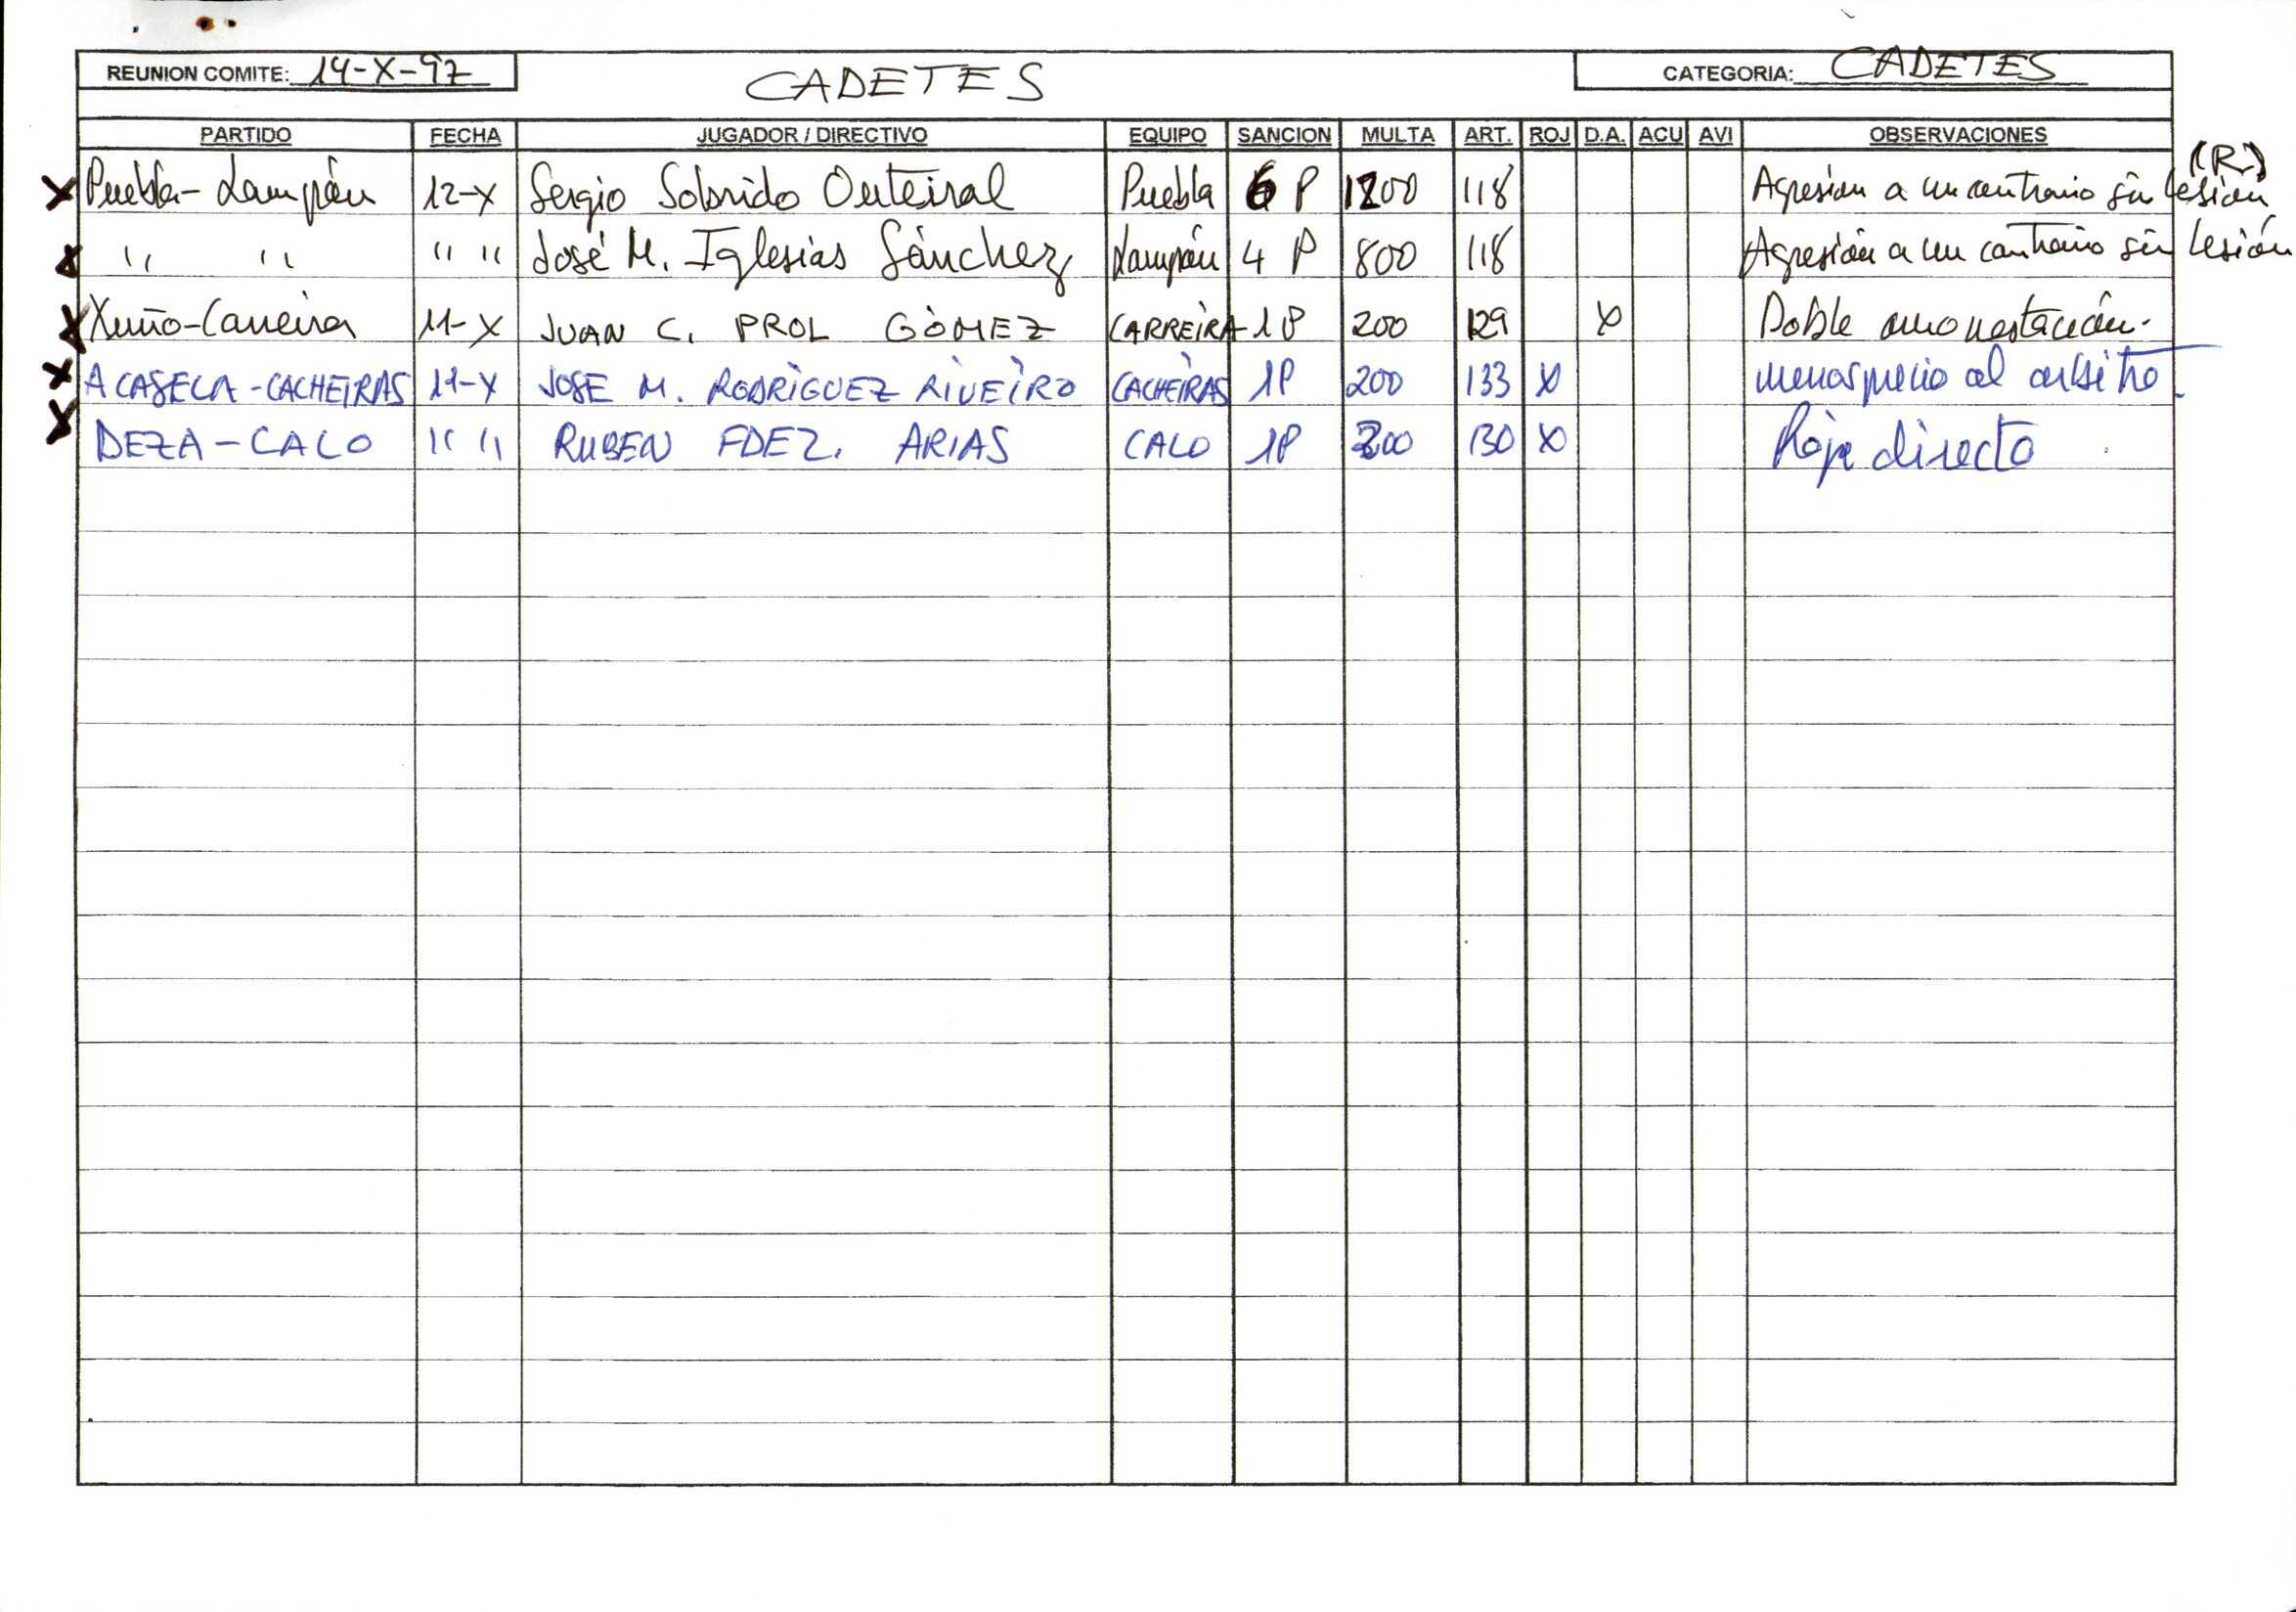 REUNION COMITE: 14-X-97 CADETES CATEGORIA: CADETES
PARTIDO FECHA JUGADOR / DIRECTIVO EQUIPO SANCION MULTA ART. ROJ D.A. ACU AVI OBSERVACIONES
(R.)
X Puebla - Lampón 12-X Sergio Sobrido Outeiral Puebla 6 P 1200 118 Agresion a un contrario sin lesion
X " " " " José M. Iglesias Sánchez Lampón 4 P 800 118 Agresión a un contrario sin lesión
X Xuño-Carreira 11-X JUAN C. PROL GÓMEZ CARREIRA 1P 200 129 X Doble amonestación.
X A CASELA - CACHEIRAS 11-X JOSE M. RODRÍGUEZ RIVEIRO CACHEIRAS 1P 200 133 X menosprecio al arbitro.
X DEZA - CALO " " RUBEN FDEZ. ARIAS CALO 1P 200 130 X Roja directa